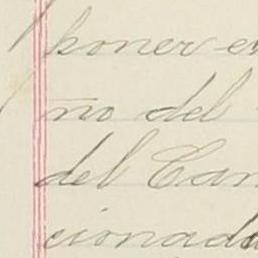 poner e
ño del
del Can
cionada